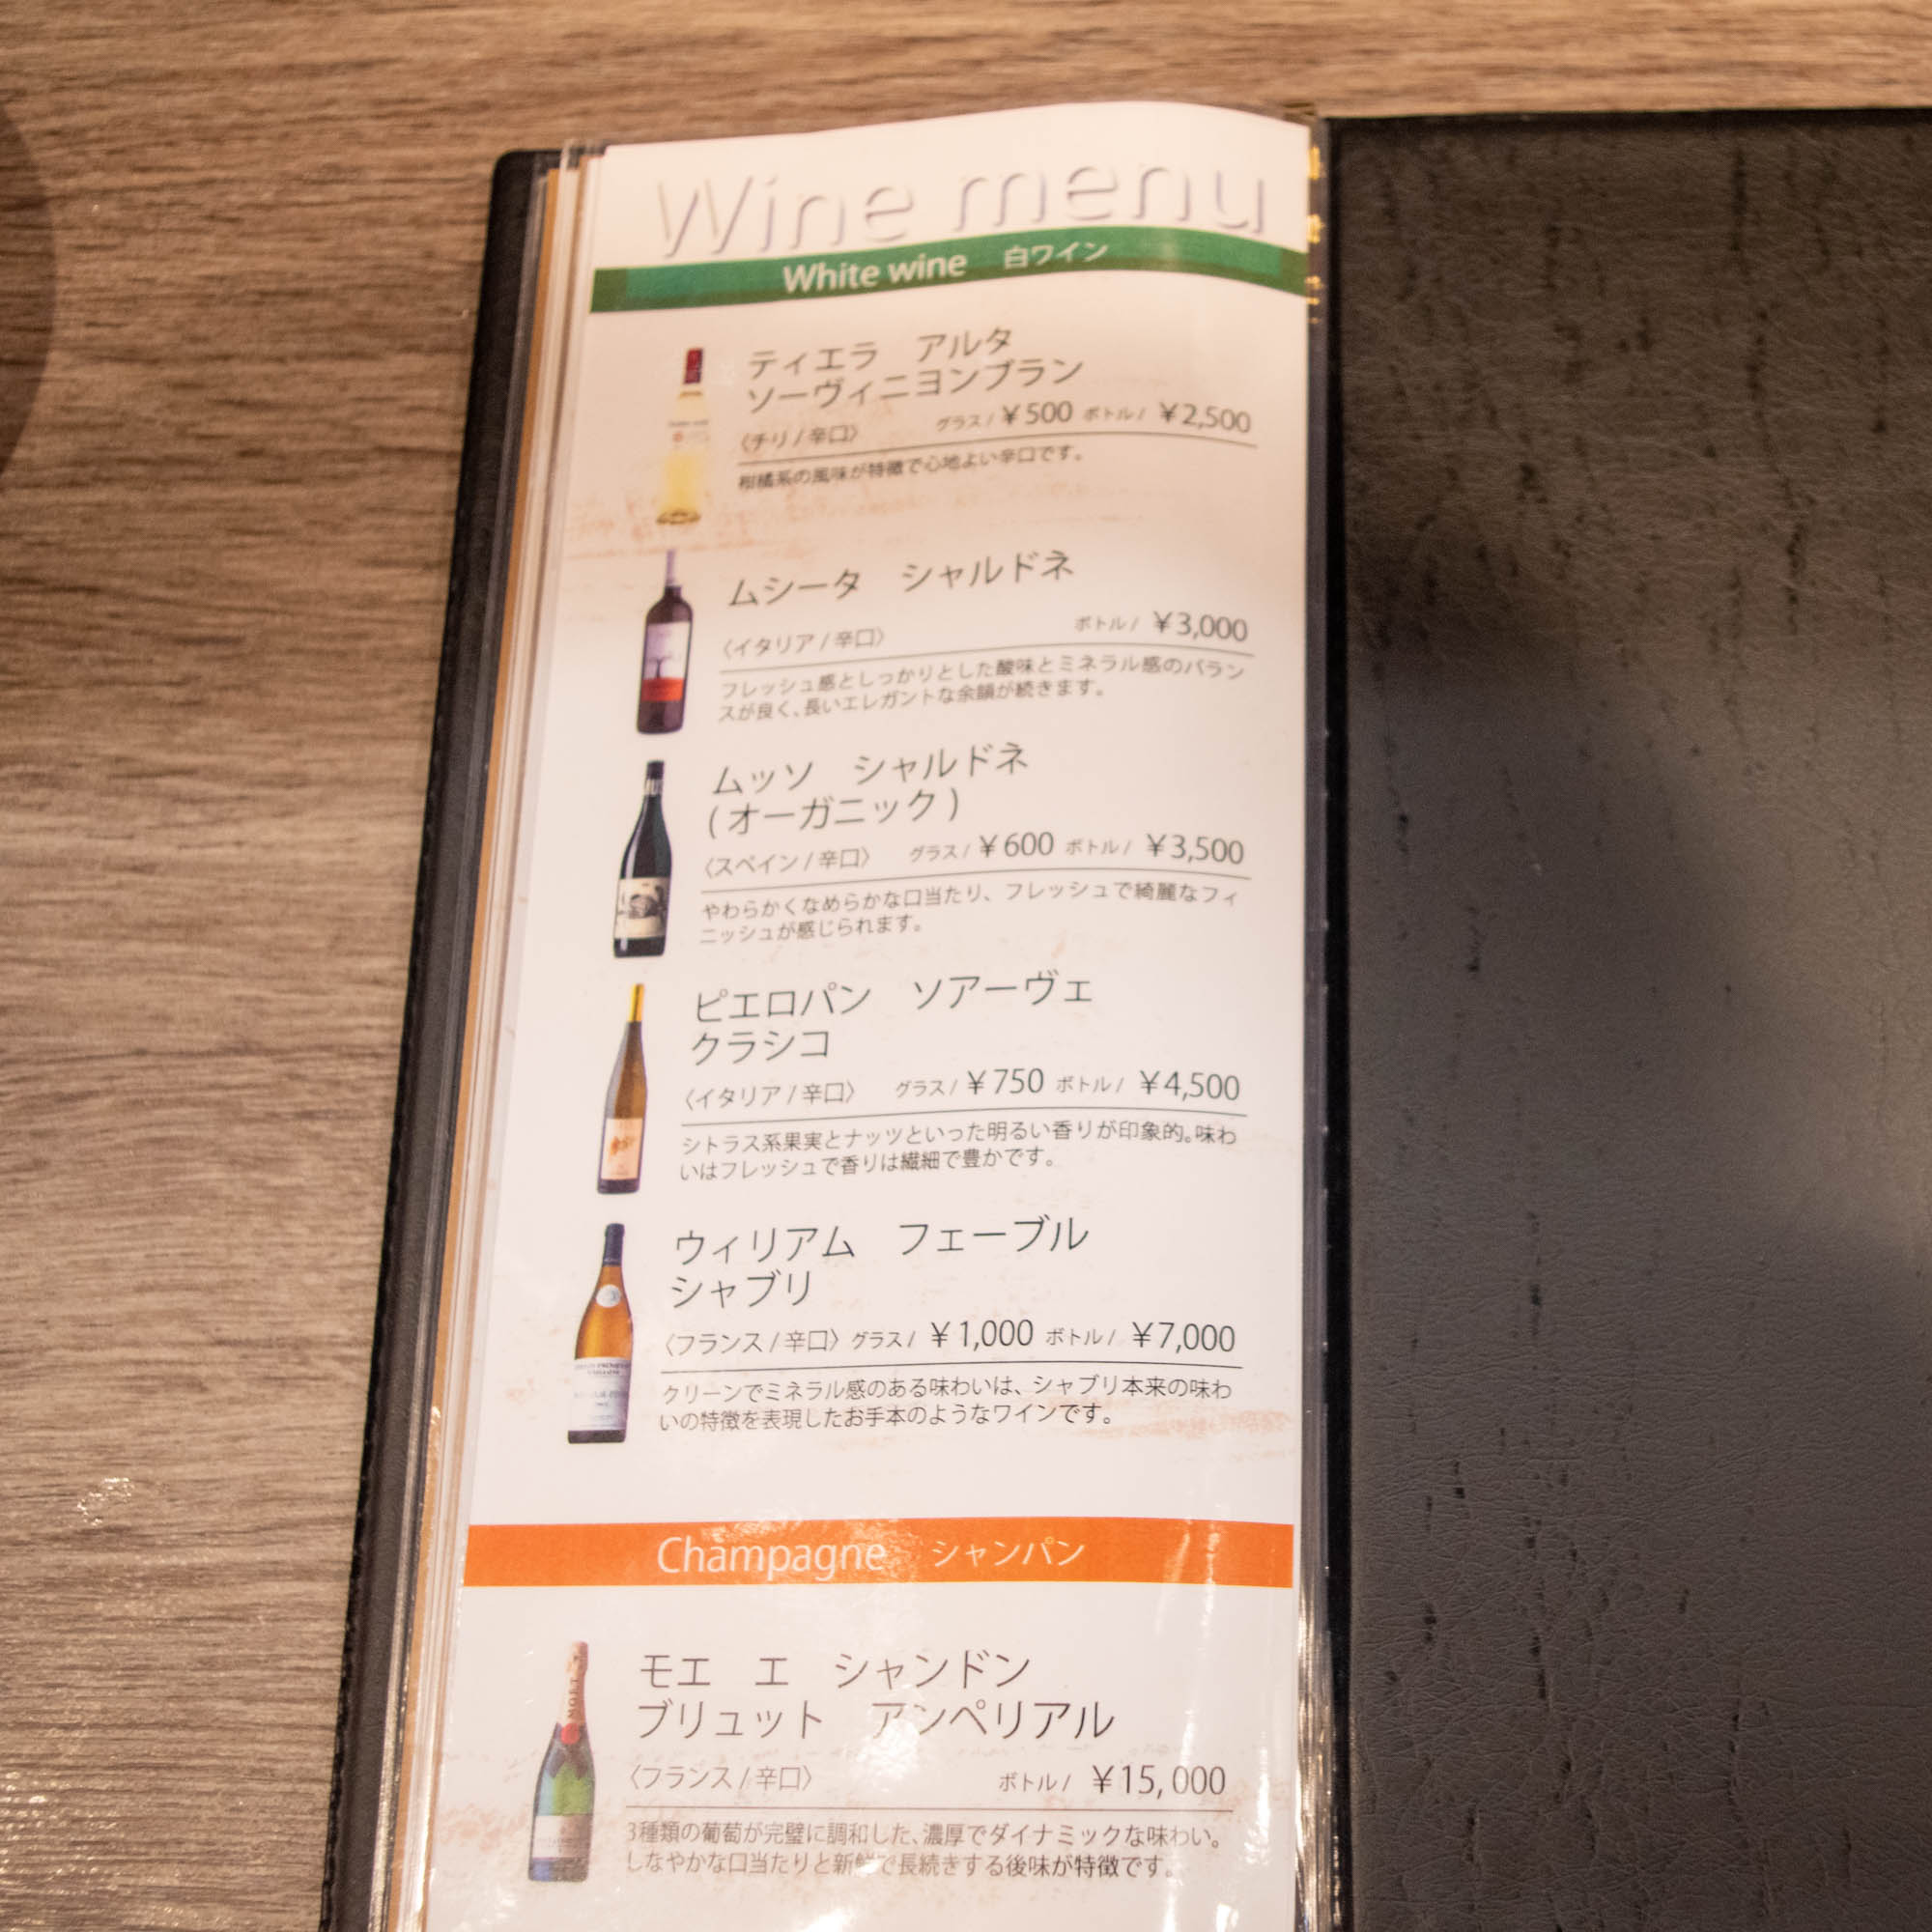 Wine menu
White wine 白ワイン
ティエラ アルタ
ソーヴィニヨンブラン
〈チリ/辛口〉 グラス/¥500 ボトル/ ¥2,500
柑橘系の風味が特徴で心地よい辛口です。
ムシータ シャルドネ
〈イタリア/辛口〉 ボトル/ ¥3,000
フレッシュ感としっかりとした酸味とミネラル感のバラン
スが良く、長いエレガントな余韻が続きます。
ムッソ シャルドネ
(オーガニック)
〈スペイン/辛口〉 グラス/¥600 ボトル/ ¥3,500
やわらかくなめらかな口当たり、フレッシュで綺麗なフィ
ニッシュが感じられます。
ピエロパン ソアーヴェ
クラシコ
〈イタリア/辛口〉 グラス/¥750 ボトル/ ¥4,500
シトラス系果実とナッツといった明るい香りが印象的。味わ
いはフレッシュで香りは繊細で豊かです。
ウィリアム フェーブル
シャブリ
〈フランス/辛口〉グラス/ ¥1,000 ボトル/ ¥7,000
クリーンでミネラル感のある味わいは、シャブリ本来の味わ
いの特徴を表現したお手本のようなワインです。
Champagne シャンパン
モエ エ シャンドン
ブリュット アンペリアル
〈フランス/辛口〉 ボトル/ ¥15,000
3種類の葡萄が完璧に調和した、濃厚でダイナミックな味わい。
しなやかな口当たりと新鮮で長続きする後味が特徴です。